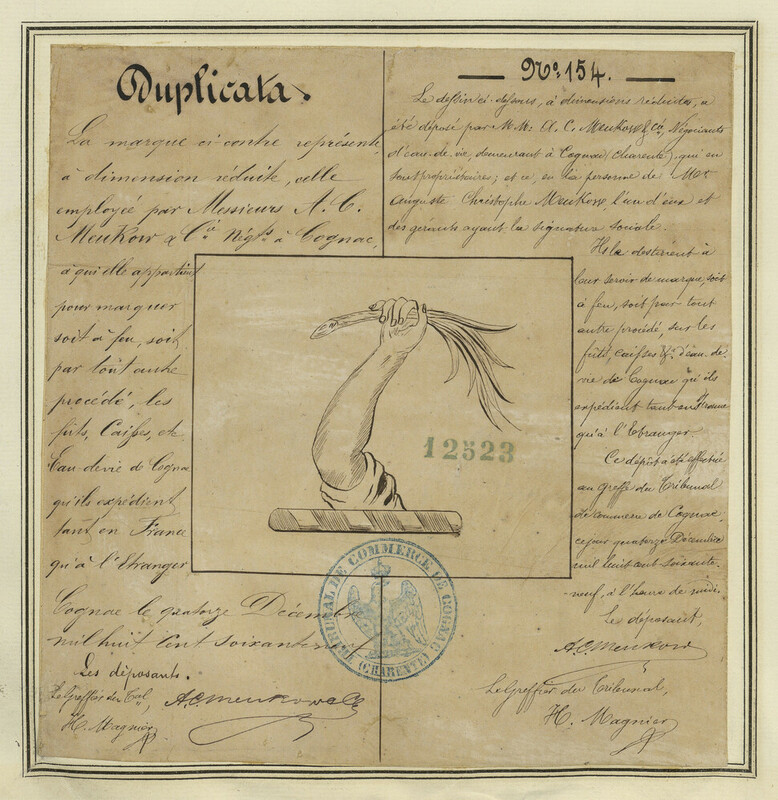 Duplicata.
La marque ci-contre représente,
à dimension réduite, celle
employée par Messieurs A. C.
Meukow & Cº Négts à Cognac,
à qui elle appartient
pour marquer
soit à feu, soit
par tout autre
procédé, les
fûts, Caisses, etc
Eau-de-vie de Cognac
qu'ils expédient
tant en France
qu'à l'Etranger
Cognac le quatorze Décembre
mil huit cent soixante neuf
Les déposants.
Le Greffier du Tal, A. C. Meukow & Co
H. Magnier
Nº 154.
Le dessin ci-dessous, à dimensions réduites, a
été déposé par M.M. A. C. Meukow & Cº, Négociants
d'eau-de-vie, demeurant à Cognac (Charente), qui en
sont propriétaires; et ce, en la personne de Mr
Auguste Christophe Meukow, l'un d'eux et
des gérants ayant la signature sociale.
Ils la destinent à
leur servir de marque, soit
à feu, soit par tout
autre procédé, sur les
fûts, caisses &a d'eau-de-
vie de Cognac qu'ils
expédient tant en France
qu'à l'Etranger.
Ce dépôt a été effectué
au Greffe du Tribunal
de commerce de Cognac
ce jour quatorze Décembre
mil huit cent soixante-
neuf, à l'heure de midi.
Le déposant,
A. C. Meukow
Le Greffier du Tribunal,
H. Magnier
12523
TRIBUNAL DE COMMERCE DE COGNAC
(CHARENTE)